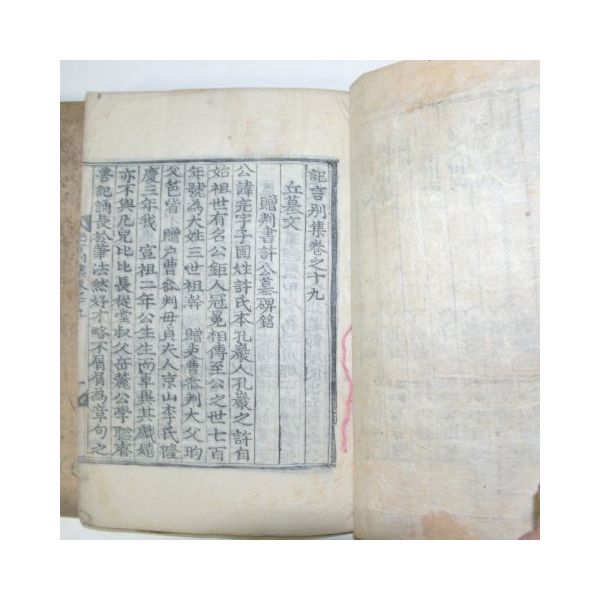 記言別集卷之十九
丘墓文
贈判書許公墓碑銘
公諱完字子固姓許氏本孔巖人孔巖之許自
始祖世有名公鉅人冠冕相傳至公之世七百
年號爲大姓三世祖幹 贈吏曹參判大父昀
父芑皆 贈户曹參判母貞夫人京山李氏隆
慶三年我 宣祖二年公生生而卓異其戲嬉
亦不與凡兒比比長從堂叔父岳麓公學聡睿
書記誦長於筆法然好才略不屑屑爲章句之